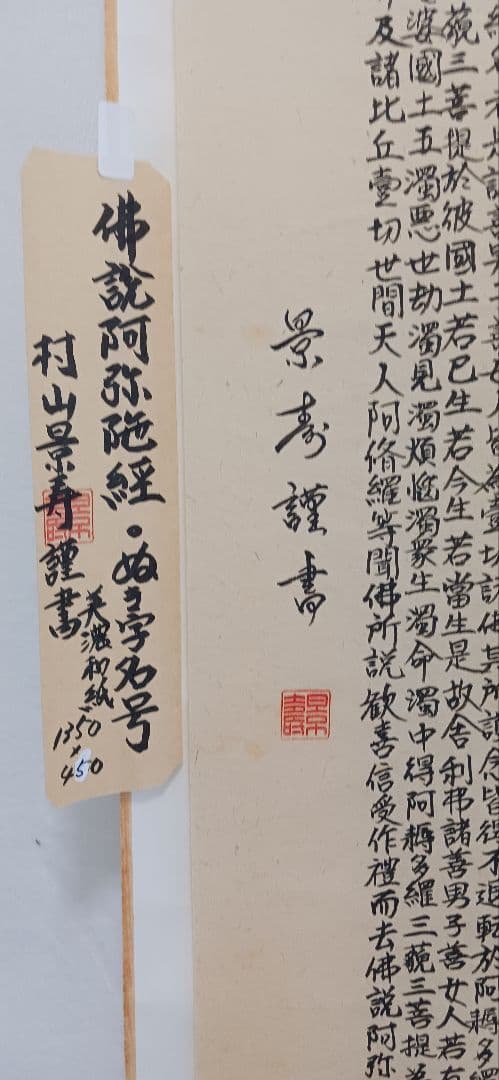 藐三菩提於彼國土若已生若今生若當生是故舍利弗諸善男子善女人若有
婆國土五濁悪世劫濁見濁煩惱濁衆生濁命濁中得阿耨多羅三藐三菩提為
及諸比丘壹切世間天人阿脩羅等聞佛所説歓喜信受作禮而去佛説阿弥
景寿謹書
佛説阿弥陀経・ぬき字名号
村山景寿謹書
美濃和紙
1350
×
450